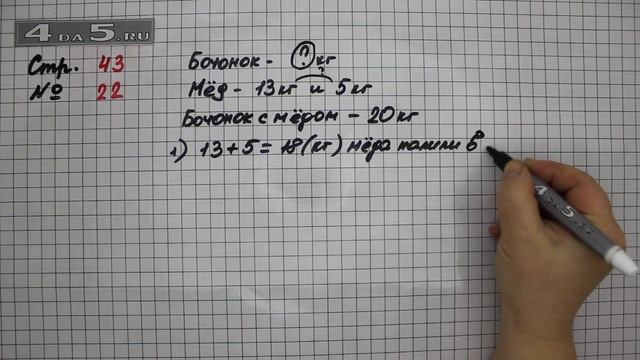 4 DA 5.RU
Стр. 43
№ 22
Бочонок - ? кг
?
Мёд - 13 кг и 5 кг
Бочонок с мёдом - 20 кг
1) 13 + 5 = 18 (кг) мёда налили в
4 DA 5